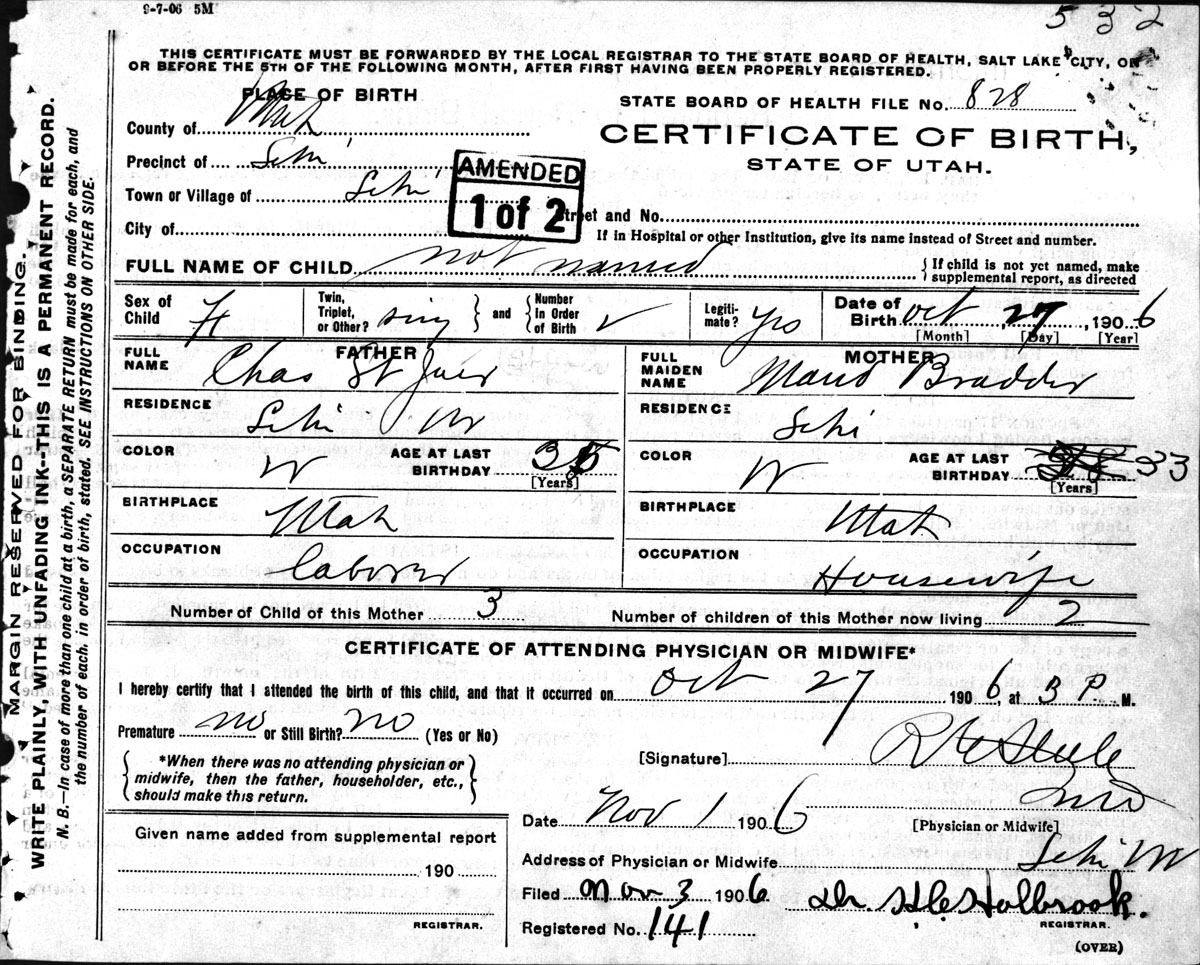 9-7-06 5M
532
THIS CERTIFICATE MUST BE FORWARDED BY THE LOCAL REGISTRAR TO THE STATE BOARD OF HEALTH, SALT LAKE CITY, ON
OR BEFORE THE 5TH OF THE FOLLOWING MONTH, AFTER FIRST HAVING BEEN PROPERLY REGISTERED.
PLACE OF BIRTH
STATE BOARD OF HEALTH FILE No. 828
County of Utah
CERTIFICATE OF BIRTH,
STATE OF UTAH.
Precinct of Lehi
AMENDED
1 of 2
Town or Village of Lehi
Street and No.
City of
If in Hospital or other Institution, give its name instead of Street and number.
FULL NAME OF CHILD not named
If child is not yet named, make
supplemental report, as directed
Sex of Child F
Twin, Triplet, or Other? sing and Number In Order of Birth
Legitimate? yes
Date of Birth Oct 27, 1906
[Month] [Day] [Year]
FATHER
FULL NAME Chas St
MOTHER
FULL MAIDEN NAME Maud
RESIDENCE Lehi
RESIDENCE Lehi
COLOR W AGE AT LAST BIRTHDAY 35
[Years]
COLOR W AGE AT LAST BIRTHDAY 33
[Years]
BIRTHPLACE Utah
BIRTHPLACE Utah
OCCUPATION Laborer
OCCUPATION Housewife
Number of Child of this Mother 3
Number of children of this Mother now living 2
CERTIFICATE OF ATTENDING PHYSICIAN OR MIDWIFE*
I hereby certify that I attended the birth of this child, and that it occurred on Oct 27 1906, at 3 P. M.
Premature no or Still Birth? no (Yes or No)
*When there was no attending physician or
midwife, then the father, householder, etc.,
should make this return.
[Signature] Steele
MD
[Physician or Midwife]
Date Nov 1 1906
Given name added from supplemental report
190
REGISTRAR.
Address of Physician or Midwife Lehi
Filed Nov 3 1906
Dr. H C Holbrook.
REGISTRAR.
Registered No. 141
(OVER)
MARGIN RESERVED FOR BINDING.
WRITE PLAINLY, WITH UNFADING INK--THIS IS A PERMANENT RECORD.
N. B.—In case of more than one child at a birth, a SEPARATE RETURN must be made for each, and
the number of each, in order of birth, stated. SEE INSTRUCTIONS ON OTHER SIDE.